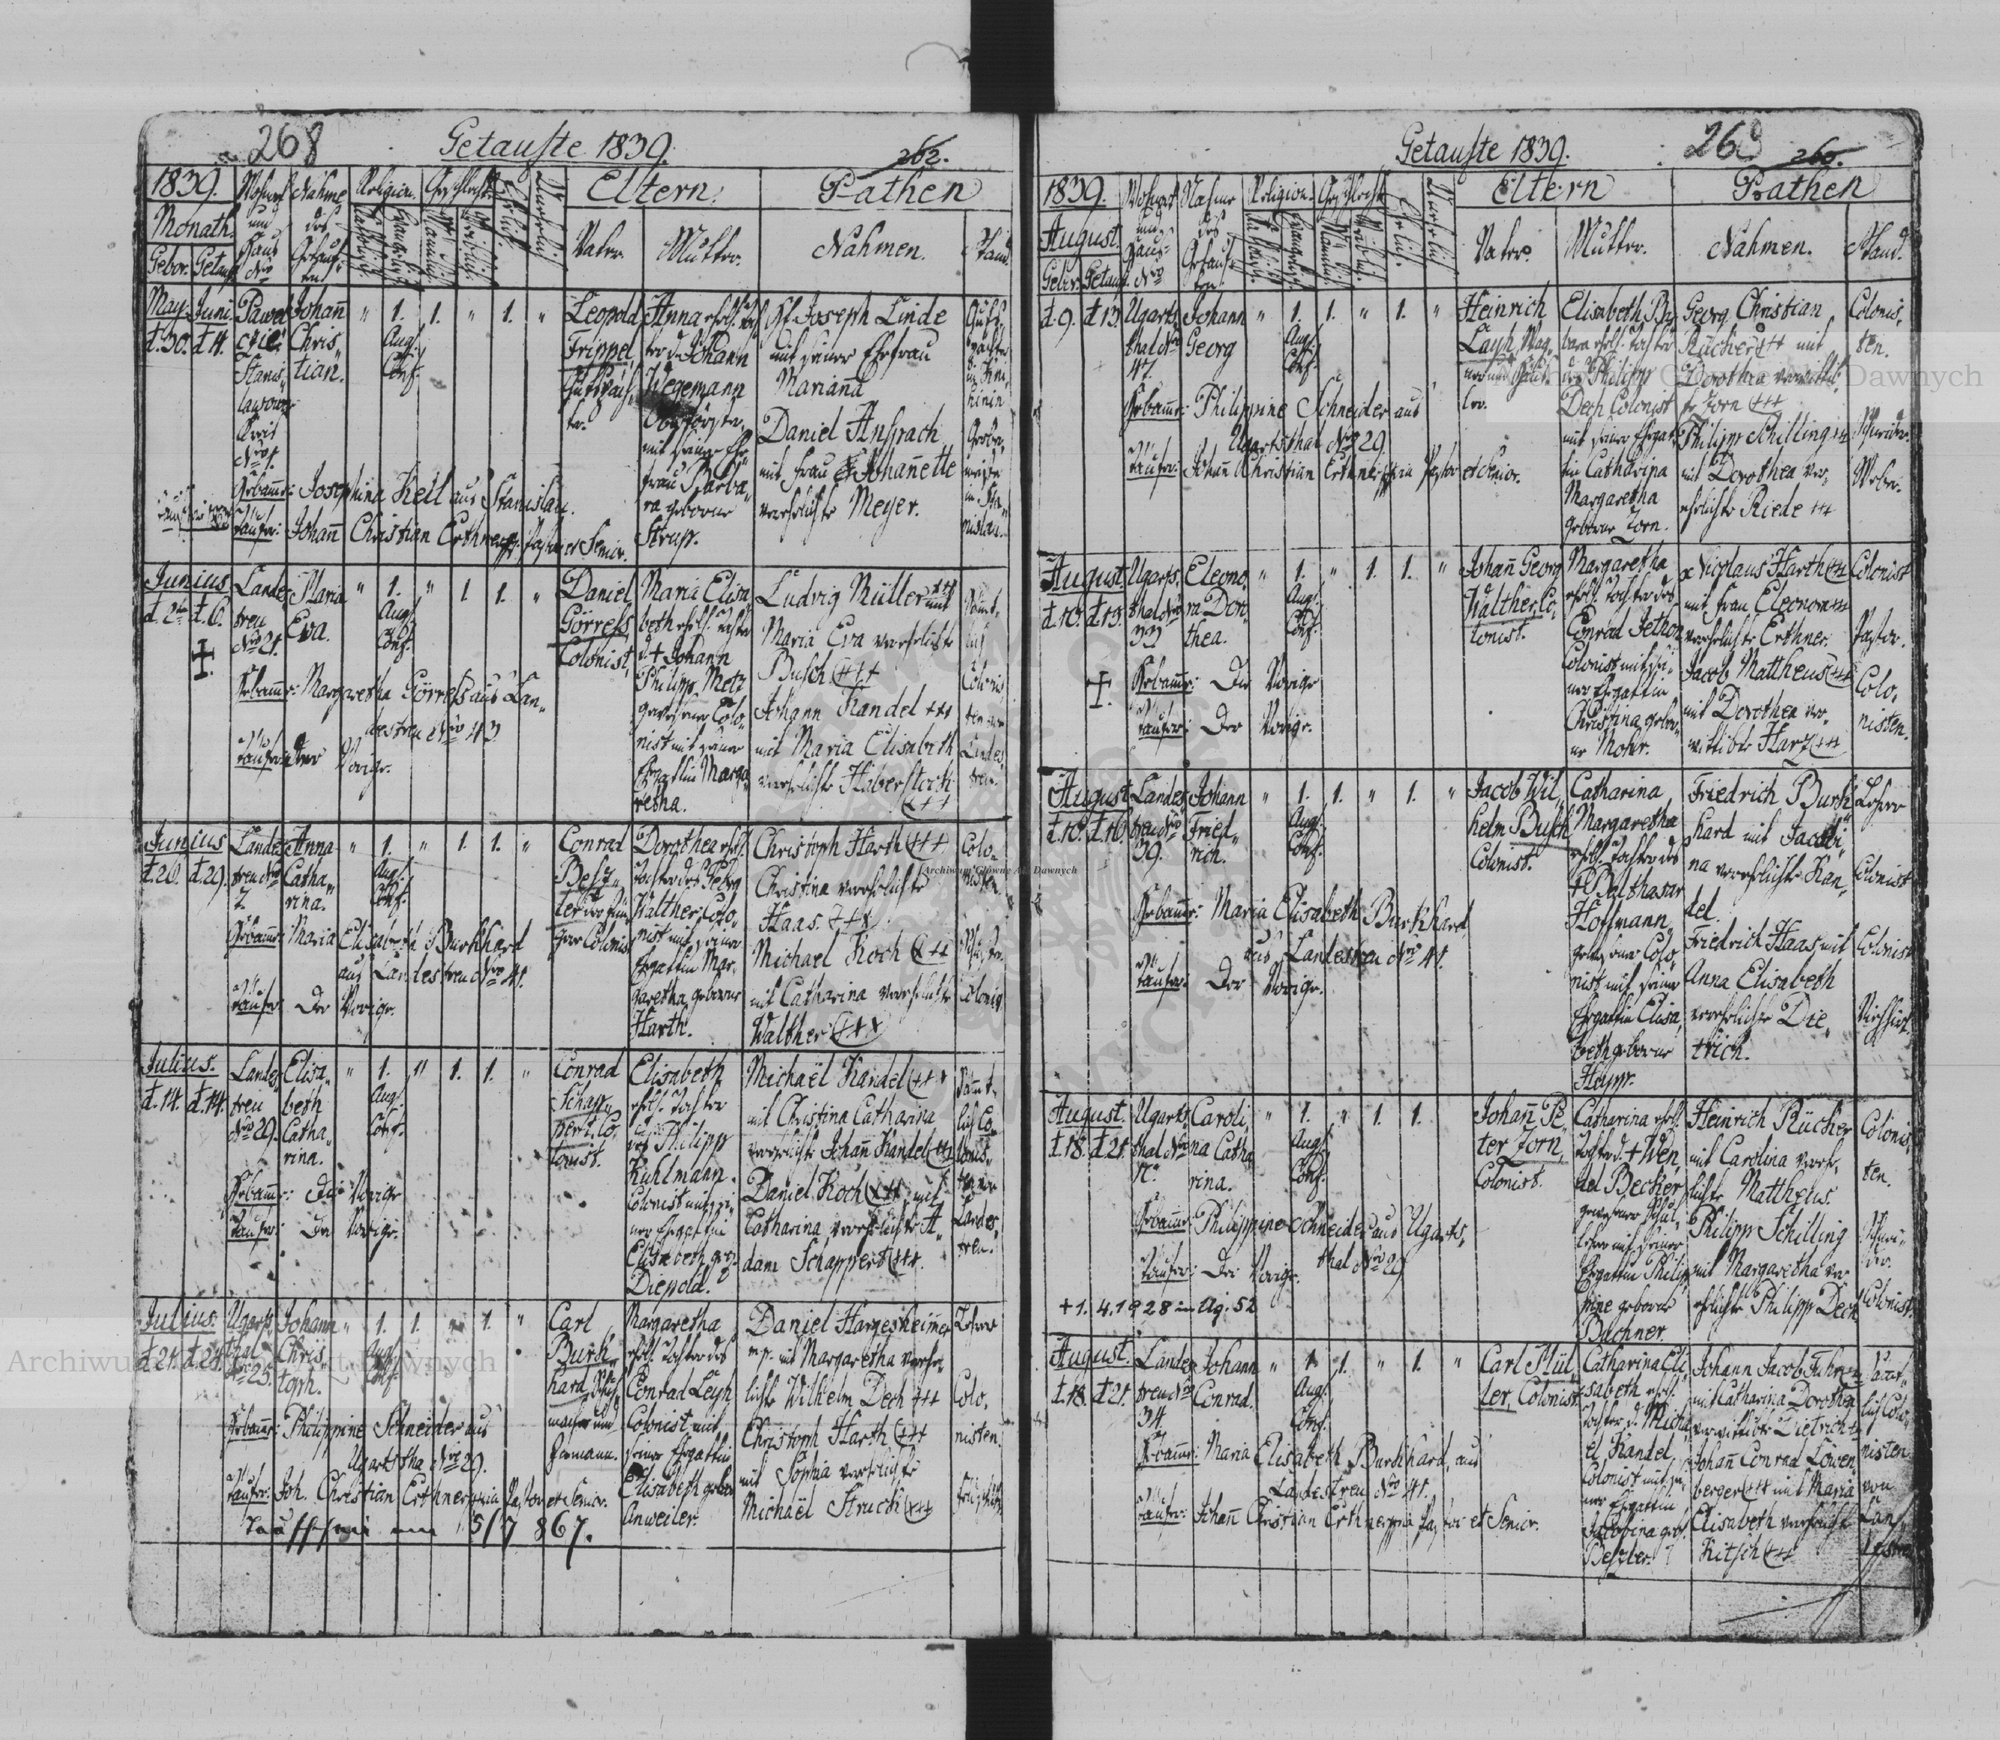 268
Getaufte 1839.
262.
1839.
Monath.
Gebor. Getauf.
Wohnort und Hauß Nro
Nahme des Getauften
Religion.
Catholisch.
Evangelisch
Geschlecht
Männlich
Weiblich.
Ehelich
Unehelich.
Eltern.
Vater.
Mutter.
Pathen
Nahmen.
Stand.
May. Juni.
d. 30. d. 4.
Johann
Chris„
tian.
" 1. 1. " 1. "
Aug.
Conf.
Leopold
Trippel
Anna ehel. Toch„
ter d. Johann
Wegemann
Oberförster,
mit seiner Ehe„
frau Barba„
ra geborne
Strup.
H. Joseph Linde
mit seiner Ehefrau
Mariana
Daniel Anspach
mit Frau Johannette
verehlichte Meyer.
Hebamme: Josephina Keil aus Stanislau.
Taufer: Johann Christian Erthner mpia Pastor et Senior.
Junius.
d. 2ten d. 6.
Landes„
treu
Nro 21.
Maria
Eva.
" 1. " 1 1. "
Aug.
Conf.
Daniel
Görress
Colonist,
Maria Elisa„
beth ehel. Tochter
d. + Johann
Philipp Metz
gewesener Colo„
nist mit seiner
Ehegattin Marga„
retha.
Ludvig Müller +++ mit
Maria Eva verehlichte
Busch (+++
Johann Kandel +++
mit Maria Elisabeth
verehlichte Haberstock
(+++
Sämt„
lich
Colonis„
ten von
Landes„
treu.
Hebamme: Margaretha Görress aus Lan„
destreu Nro 43.
Taufer: Der Vorige.
Junius
d. 26. d. 29.
Landes„
treu Nro
7.
Anna
Catha„
rina.
" 1. " 1. 1. "
Aug.
Conf.
Conrad
Besz„
ler
Colonist
Dorothea ehel.
Tochter des Georg
Walther, Colo„
nist mit seiner
Ehegattin Mar„
garetha geborne
Harth.
Christoph Harth (+++
Christina verehlichte
Haas. +++
Michael Koch (+++
mit Catharina verehlichte
Walther (+++
Colo„
nisten.
Colonist
Hebamme: Maria Elisabetha Burkhard
aus Landestreu Nro 41.
Taufer: Der Vorige.
Julius.
d. 14. d. 14.
Landes„
treu
Nro 29.
Elisa„
beth
Catha„
rina.
" 1. " 1. 1. "
Aug.
Conf.
Conrad
Schap„
pert, Co„
lonist.
Elisabeth
ehel. Tochter
des Philipp
Kuhlmann,
Colonist mit sei„
ner Ehegattin
Elisabeth geb.
Diepold.
Michaël Kandel (+++
mit Christina Catharina
verehlichte Johann Kandel (+++
Daniel Koch (+++ mit
Catharina verehlichte A„
dam Schappert (+++.
Sämt„
lich Co„
lonis„
ten von
Landes„
treu.
Hebamme: Die Vorige
Taufer: Der Vorige.
Julius.
d. 21. d. 25.
Ugarts„
thal
Nro 25.
Johann
Chris„
toph.
" 1. 1. " 1. "
Aug.
Conf.
Carl
Burk„
hard,
Margaretha
ehel. Tochter des
Conrad Leyh
Colonist mit
seiner Ehegattin
Elisabeth geborne
Anweiler.
Daniel Hargesheimer
mp. mit Margaretha verehe„
lichte Wilhelm Dech +++
Christoph Harth (+++
mit Sophia verehlichte
Michaël Struch (+++
Lehrer
Colo„
nisten.
Hebamme: Philippine Schneider aus
Ugartstha Nro 29.
Taufer: Joh. Christian Erthner mpia Pastor et Senior.
Taufschein am 5/7 867.
Getaufte 1839.
268
260.
1839.
August.
Gebor. Getauf.
Wohnort und Hauß Nro
Nahme des Getauften
Religion.
Geschlecht
Ehelich.
Unehelich
Eltern
Vater.
Mutter.
Pathen
Nahmen.
Stand.
d. 9. d. 13.
Ugarts„
thal Nro
47.
Johann
Georg
" 1. 1. " 1. "
Aug.
Conf.
Heinrich
Layh, Wag„
Elisabeth Bar„
bara ehel. Tochter
des Philipp
Dech Colonist
mit seiner Ehegat„
tin Catharina
Margaretha
geborne Zorn.
Georg Christian
Rücher +++ mit
Dorothea verwittib„
te Zorn +++
Philipp Schilling +++
mit Dorothea ver„
ehlichte Riede +++
Colonis„
ten.
Schneider.
Weber.
Hebamme: Philippine Schneider aus
Ugartsthal Nro 29.
Taufer: Johann Christian Erthner mpia Pastor et Senior.
August
d. 10. d. 13.
Ugarts„
thal Nro
32
Eleono„
ra Doro„
thea.
" 1. " 1. 1. "
Aug.
Conf.
Johann Georg
Walther, Co„
lonist.
Margaretha
ehel. Tochter des
Conrad Jethon
Colonist mit sei„
ner Ehegattin
Christina gebor„
ne Mohr.
Nicolaus Harth (+++
mit Frau Eleonora
verehlichte Erthner.
Jacob Mattheus (+++
mit Dorothea ver„
wittibte Harz (+++
Colonist
Pastor.
Colo„
nisten.
Hebamme: Die Vorige
Taufer: Der Vorige.
August
d. 10. d. 16.
Landes„
treu Nro
39.
Johann
Fried„
rich.
" 1. 1. " 1. "
Aug.
Conf.
Jacob Wil„
helm Busch
Colonist.
Catharina
Margaretha
ehel. Tochter des
+ Balthasar
Hoffmann,
gewesener Colo„
nist mit seiner
Ehegattin Elisa„
beth geborne
Hupp.
Friedrich Burk„
hard mit Jacobi„
na verehlichte Kan„
del.
Friedrich Haas mit
Anna Elisabeth
verehlichte Die„
trich.
Lehrer
Colonist
Colonist
Hebamme: Maria Elisabeth Burkhard
aus Landestreu Nro 41.
Taufer: Der Vorige.
August.
d. 18. d. 21.
Ugarts„
thal Nro
Caroli„
na Catha„
rina.
" 1. " 1. 1.
Aug.
Conf.
Johann Pe„
ter Zorn,
Colonist.
Catharina ehel.
Tochter d. + Wen„
del Becker
gewesener Schul„
lehrer mit seiner
Ehegattin Philip„
pine geborne
Buchner.
Heinrich Rücher
mit Carolina vereh„
lichte Mattheus.
Philipp Schilling
mit Margaretha ver„
ehlichte Philipp Dech
Colonis„
ten.
Schnei„
der.
Colonist.
Hebamme: Philippine Schneider aus Ugarts„
thal Nro 29.
Taufer: Der Vorige.
+ 1. 4. 1928 in Ug. 52
August.
d. 18. d. 21.
Landes„
treu Nro
34
Johann
Conrad.
" 1 1. " 1. "
Aug.
Conf.
Carl Mül„
ler, Colonist.
Catharina Eli„
sabeth ehel.
Tochter d. Micha„
el Kandel
Colonist mit sei„
ner Ehegattin
Jacobina geb.
Beszler.
Johann Jacob Fuhr
mit Catharina Dorothea
verwittibte Dietrich +++
Johann Conrad Löwen„
berger (+++ mit Maria
Elisabeth verehlichte
Kitsch (+++
Sämt„
lich Colo„
nisten
von
Lan„
destreu
Hebamme: Maria Elisabeth Burkhard, aus
Landestreu Nro 41.
Taufer: Johann Christian Erthner mpia Pastor et Senior.
Archiwum Główne Akt Dawnych